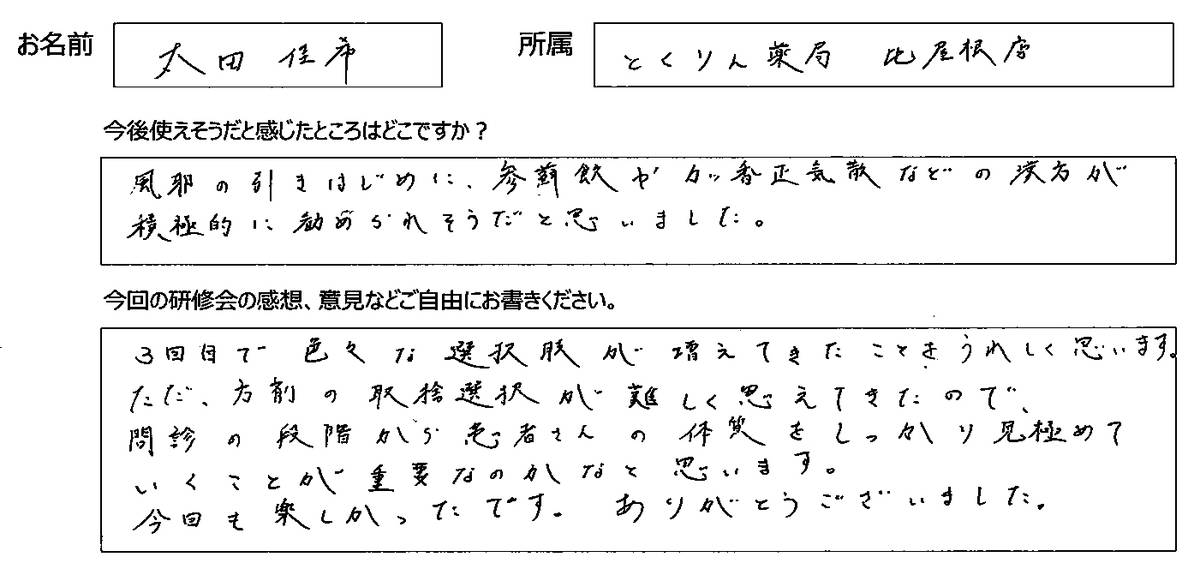 お名前 太田 佳希 所属 とくりん薬局 比屋根店
今後使えそうだと感じたところはどこですか？
風邪の引きはじめに、参蘇飲やカッ香正気散などの漢方が
積極的に勧められそうだと思いました。
今回の研修会の感想、意見などご自由にお書きください。
3回目で色々な選択肢が増えてきたことをうれしく思います。
ただ、方剤の取捨選択が難しく思えてきたので、
問診の段階から患者さんの体質をしっかり見極めて
いくことが重要なのかなと思います。
今回も楽しかったです。ありがとうございました。